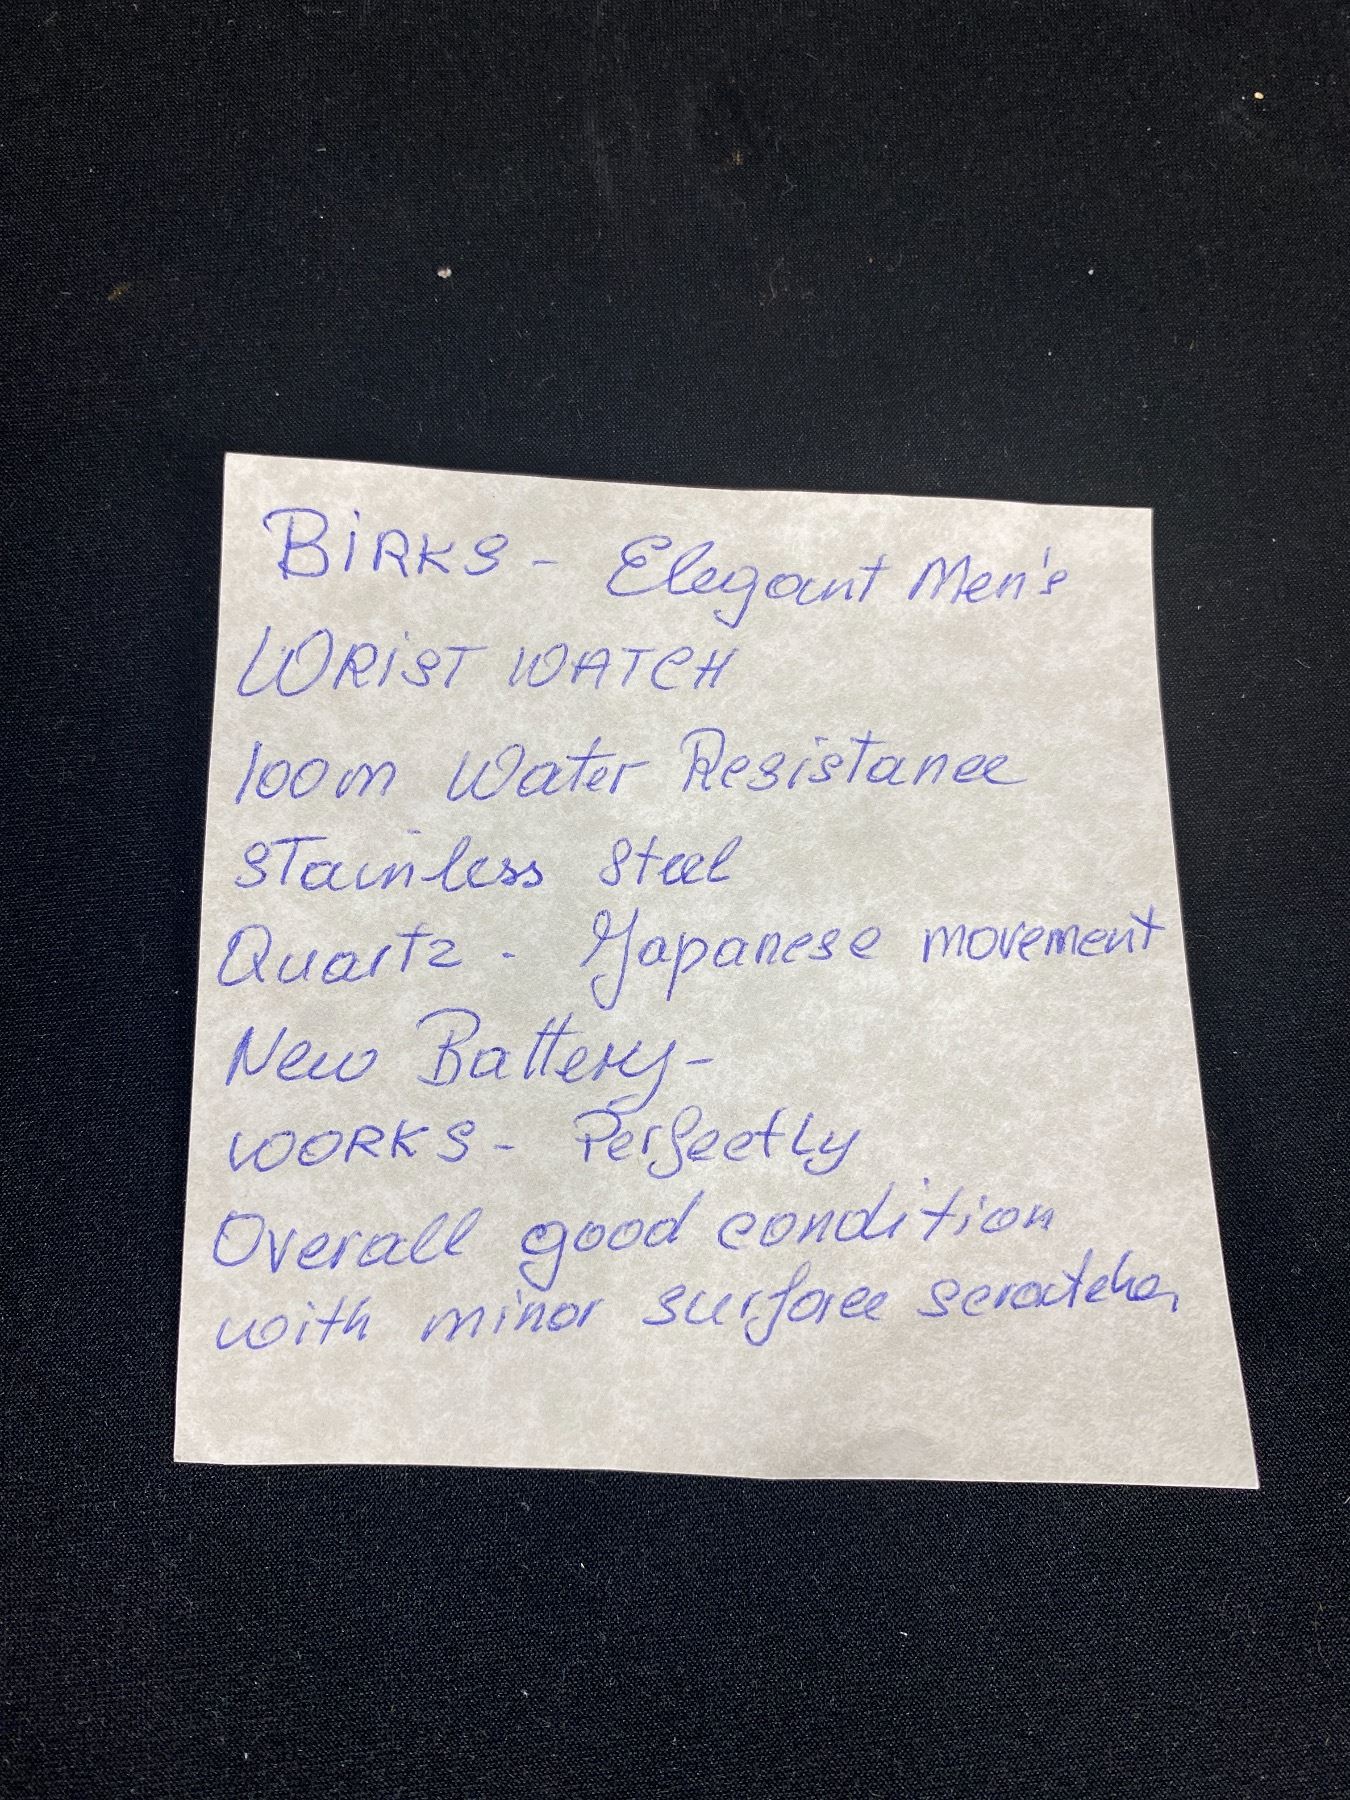 BiRKS - Elegant Men's
WRiST WATCH
100m Water Resistance
STainless Steel
Quartz - Japanese movement
New Battery -
WORKS - Perfectly
Overall good condition
with minor surface scratches